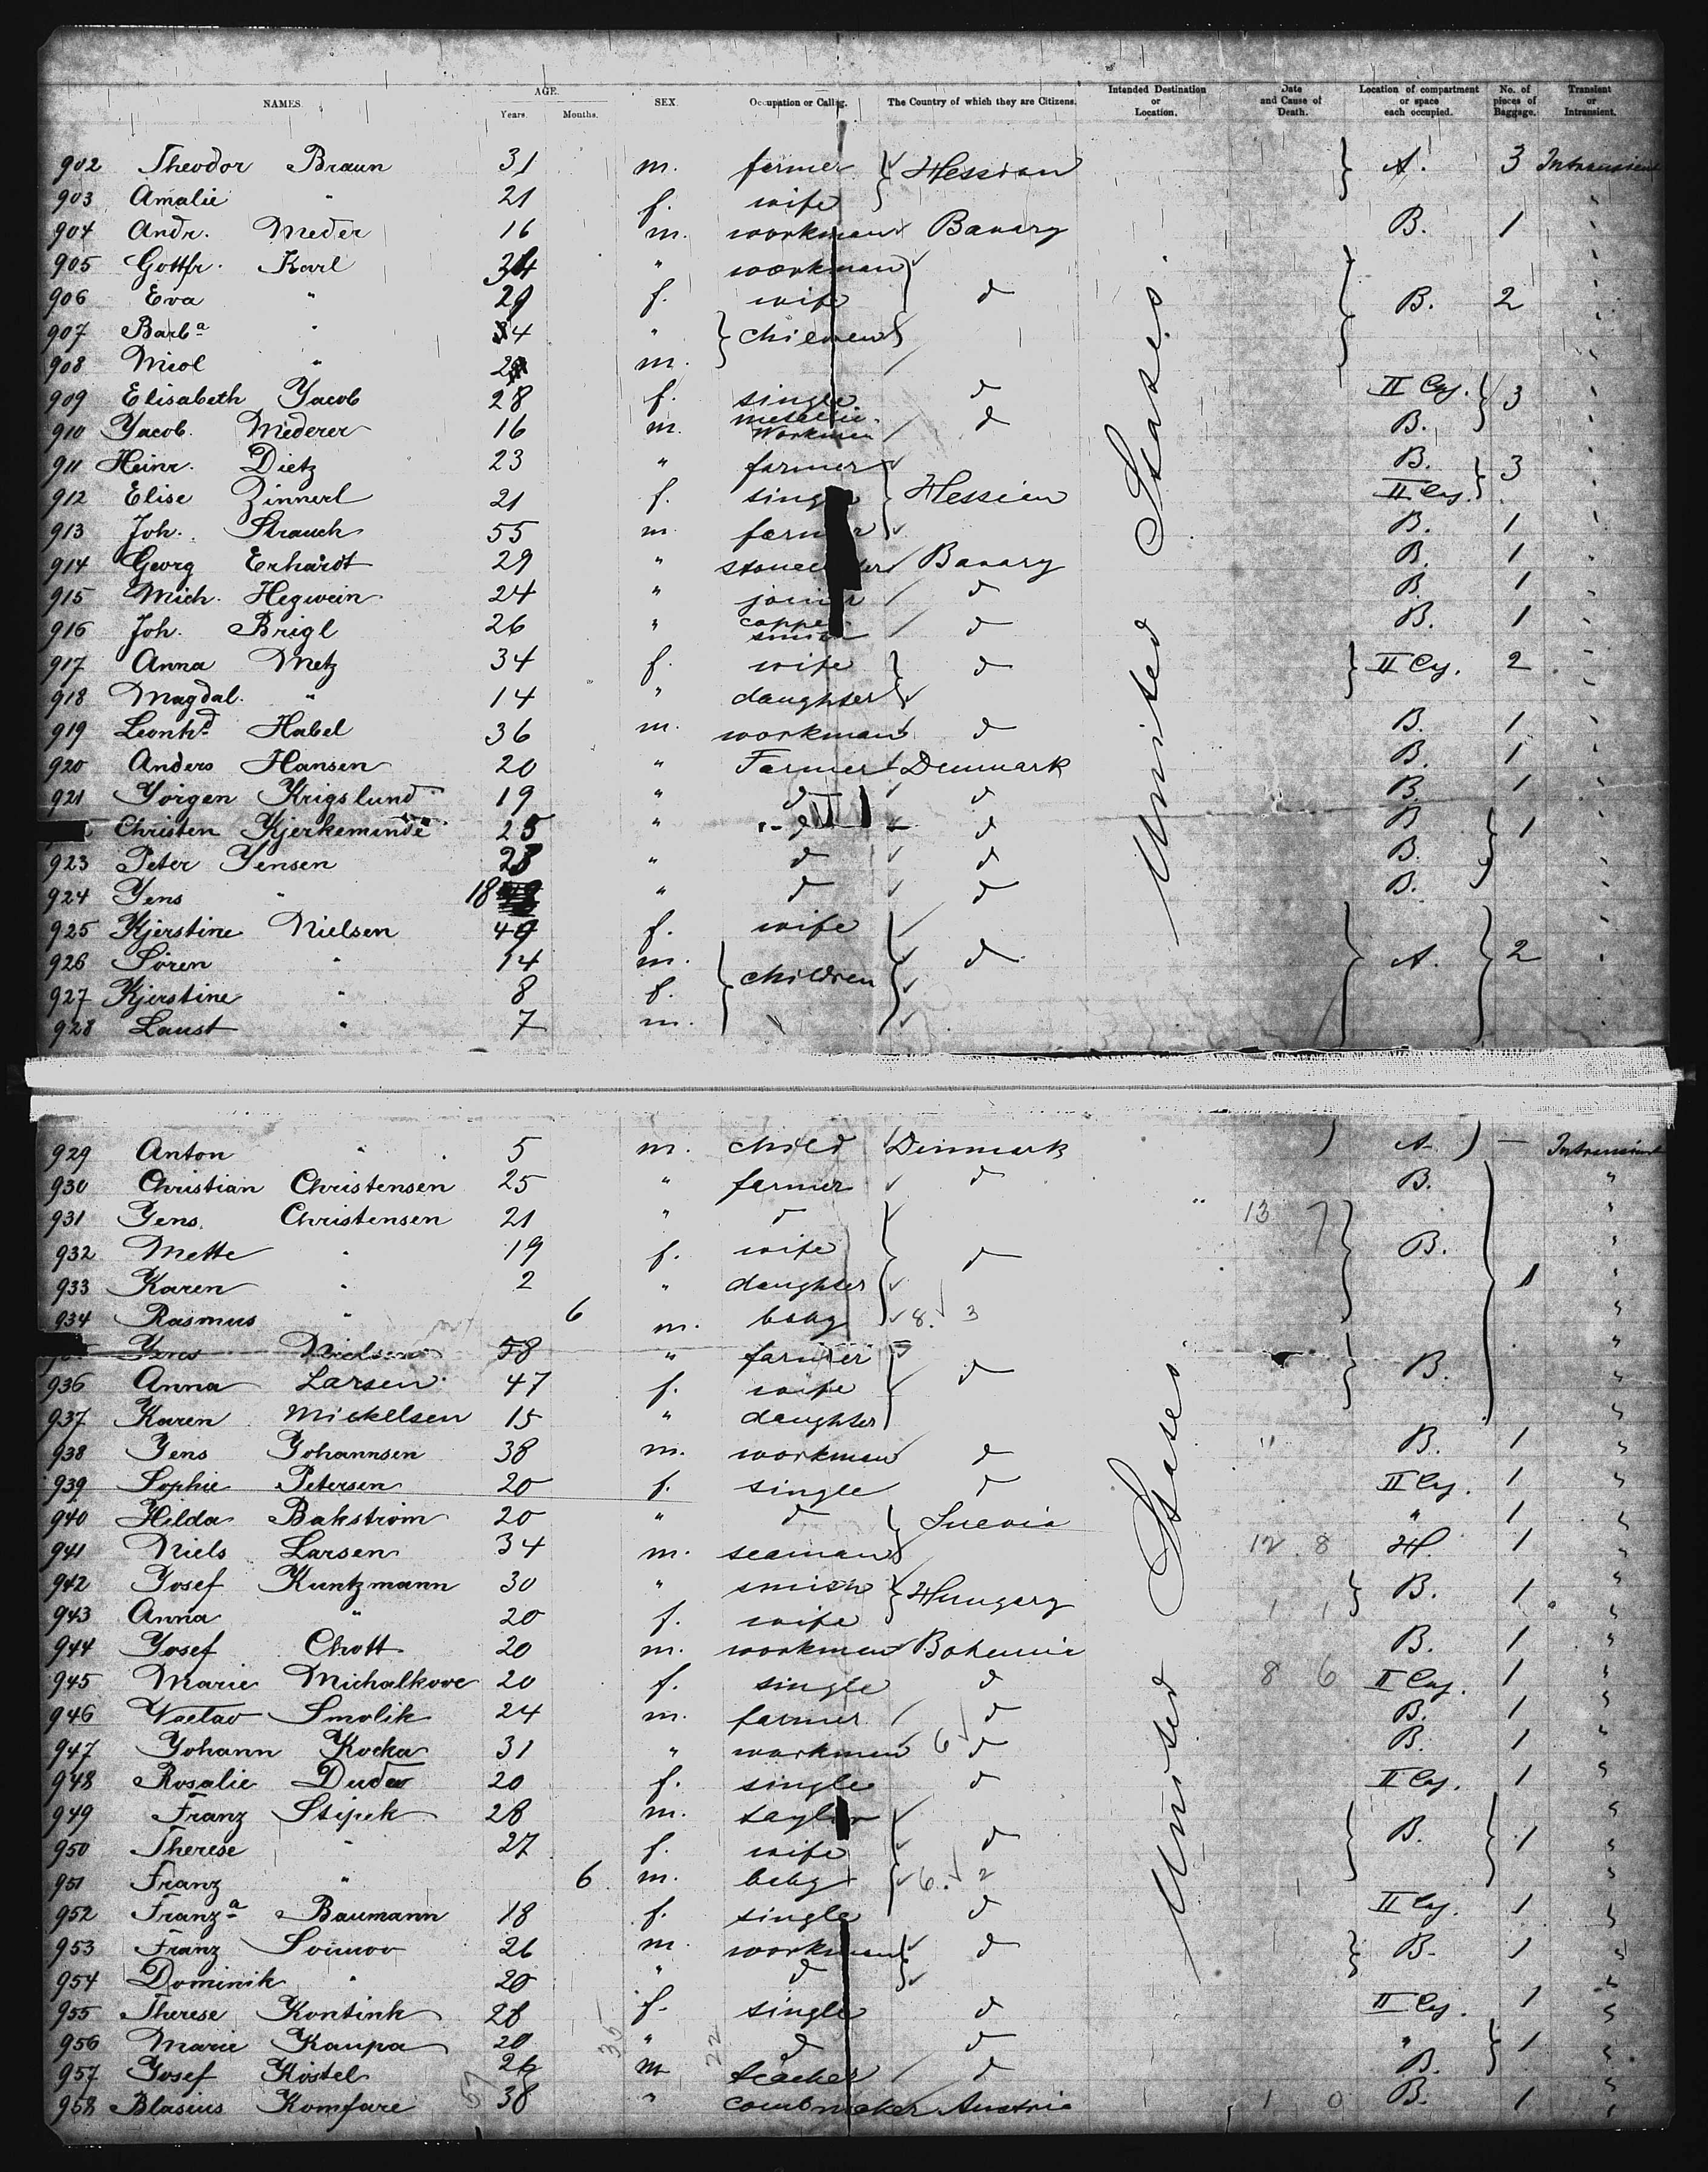 NAMES. AGE. Years. Months. SEX. Occupation or Calling. The Country of which they are Citizens. Intended Destination or Location. Date and Cause of Death. Location of compartment or space each occupied. No. of pieces of Baggage. Transient or Intransient.
902 Theodor Braun 31 m. farmer Hessian A. 3 Intransient
903 Amalie " 21 f. wife
904 Andr. Meder 16 m. workman Bavary B. 1
905 Gottfr. Karl 34 " workman
906 Eva " 29 f. wife d B. 2
907 Barbª " 34 " children
908 Miol " m.
909 Elisabeth Yacob 28 f. single d II Caj. 3
910 Yacob Mederer 16 m. metallic Workman d B.
911 Heinr. Dietz 23 " farmer B. 3
912 Elise Zinnerl 21 f. single Hessian II Caj.
913 Joh. Strauch 55 m. farmer B. 1
914 Georg Erhardt 29 " Bavary B. 1
915 Mich. Hegwein 24 " joiner d B. 1
916 Joh. Brigl 26 " copper smith d B. 1
917 Anna Metz 34 f. wife d II Caj. 2
918 Magdal. " 14 " daughter
919 Leonhd Habel 36 m. workman d B. 1
920 Anders Hansen 20 " Farmer Denmark B. 1
921 Yörgen Krigslund 19 " d d B. 1
Christen Kjerkeminde 25 " d d B. 1
923 Peter Yensen 28 " d d B.
924 Yens " 18 " d d B.
925 Kjerstine Nielsen 49 f. wife
926 Sören " 14 m. children d A. 2
927 Kjerstine " 8 f.
928 Laust " 7 m.
United States.
929 Anton " 5 m. child Denmark A. — Intransient
930 Christian Christensen 25 " farmer d B. "
931 Yens Christensen 21 " d 13 7
932 Mette " 19 f. wife d B.
933 Karen " 2 " daughter 1
934 Rasmus " 6 m. baby 8. 3
Yens Nielsen 58 " farmer
936 Anna Larsen 47 f. wife d B.
937 Karen Mickelsen 15 " daughter
938 Yens Yohannsen 38 m. workman d B. 1
939 Sophie Petersen 20 f. single d II Caj. 1
940 Hilda Bakström 20 " d Suevia " 1
941 Niels Larsen 34 m. seaman 12 8 H. 1
942 Yosef Kuntzmann 30 " smith Hungary B. 1
943 Anna " 20 f. wife 1 1
944 Yosef Chott 20 m. workman Bohemia B. 1
945 Marie Michalkove 20 f. single d 8 6 II Caj. 1
946 Vaclav Smolik 24 m. farmer d B. 1
947 Yohann Kocka 31 " workman 6 d B. 1
948 Rosalie Duda 20 f. single d II Caj. 1
949 Franz Stipek 28 m. taylor
950 Therese " 27 f. wife d B. 1
951 Franz " 6 m. baby 6. 2
952 Franzª Baumann 18 f. single d II Caj. 1
953 Franz 26 m. workman d B. 1
954 Dominik " 20 " d
955 Therese Kontink 28 f. single d II Caj. 1
956 Marie Kaupa 20 " d d " 1
957 Yosef Köstel 26 m teacher d B.
958 Blasius Komfare 38 " combmaker Austria 1 0 B. 1
United States
35 22 57